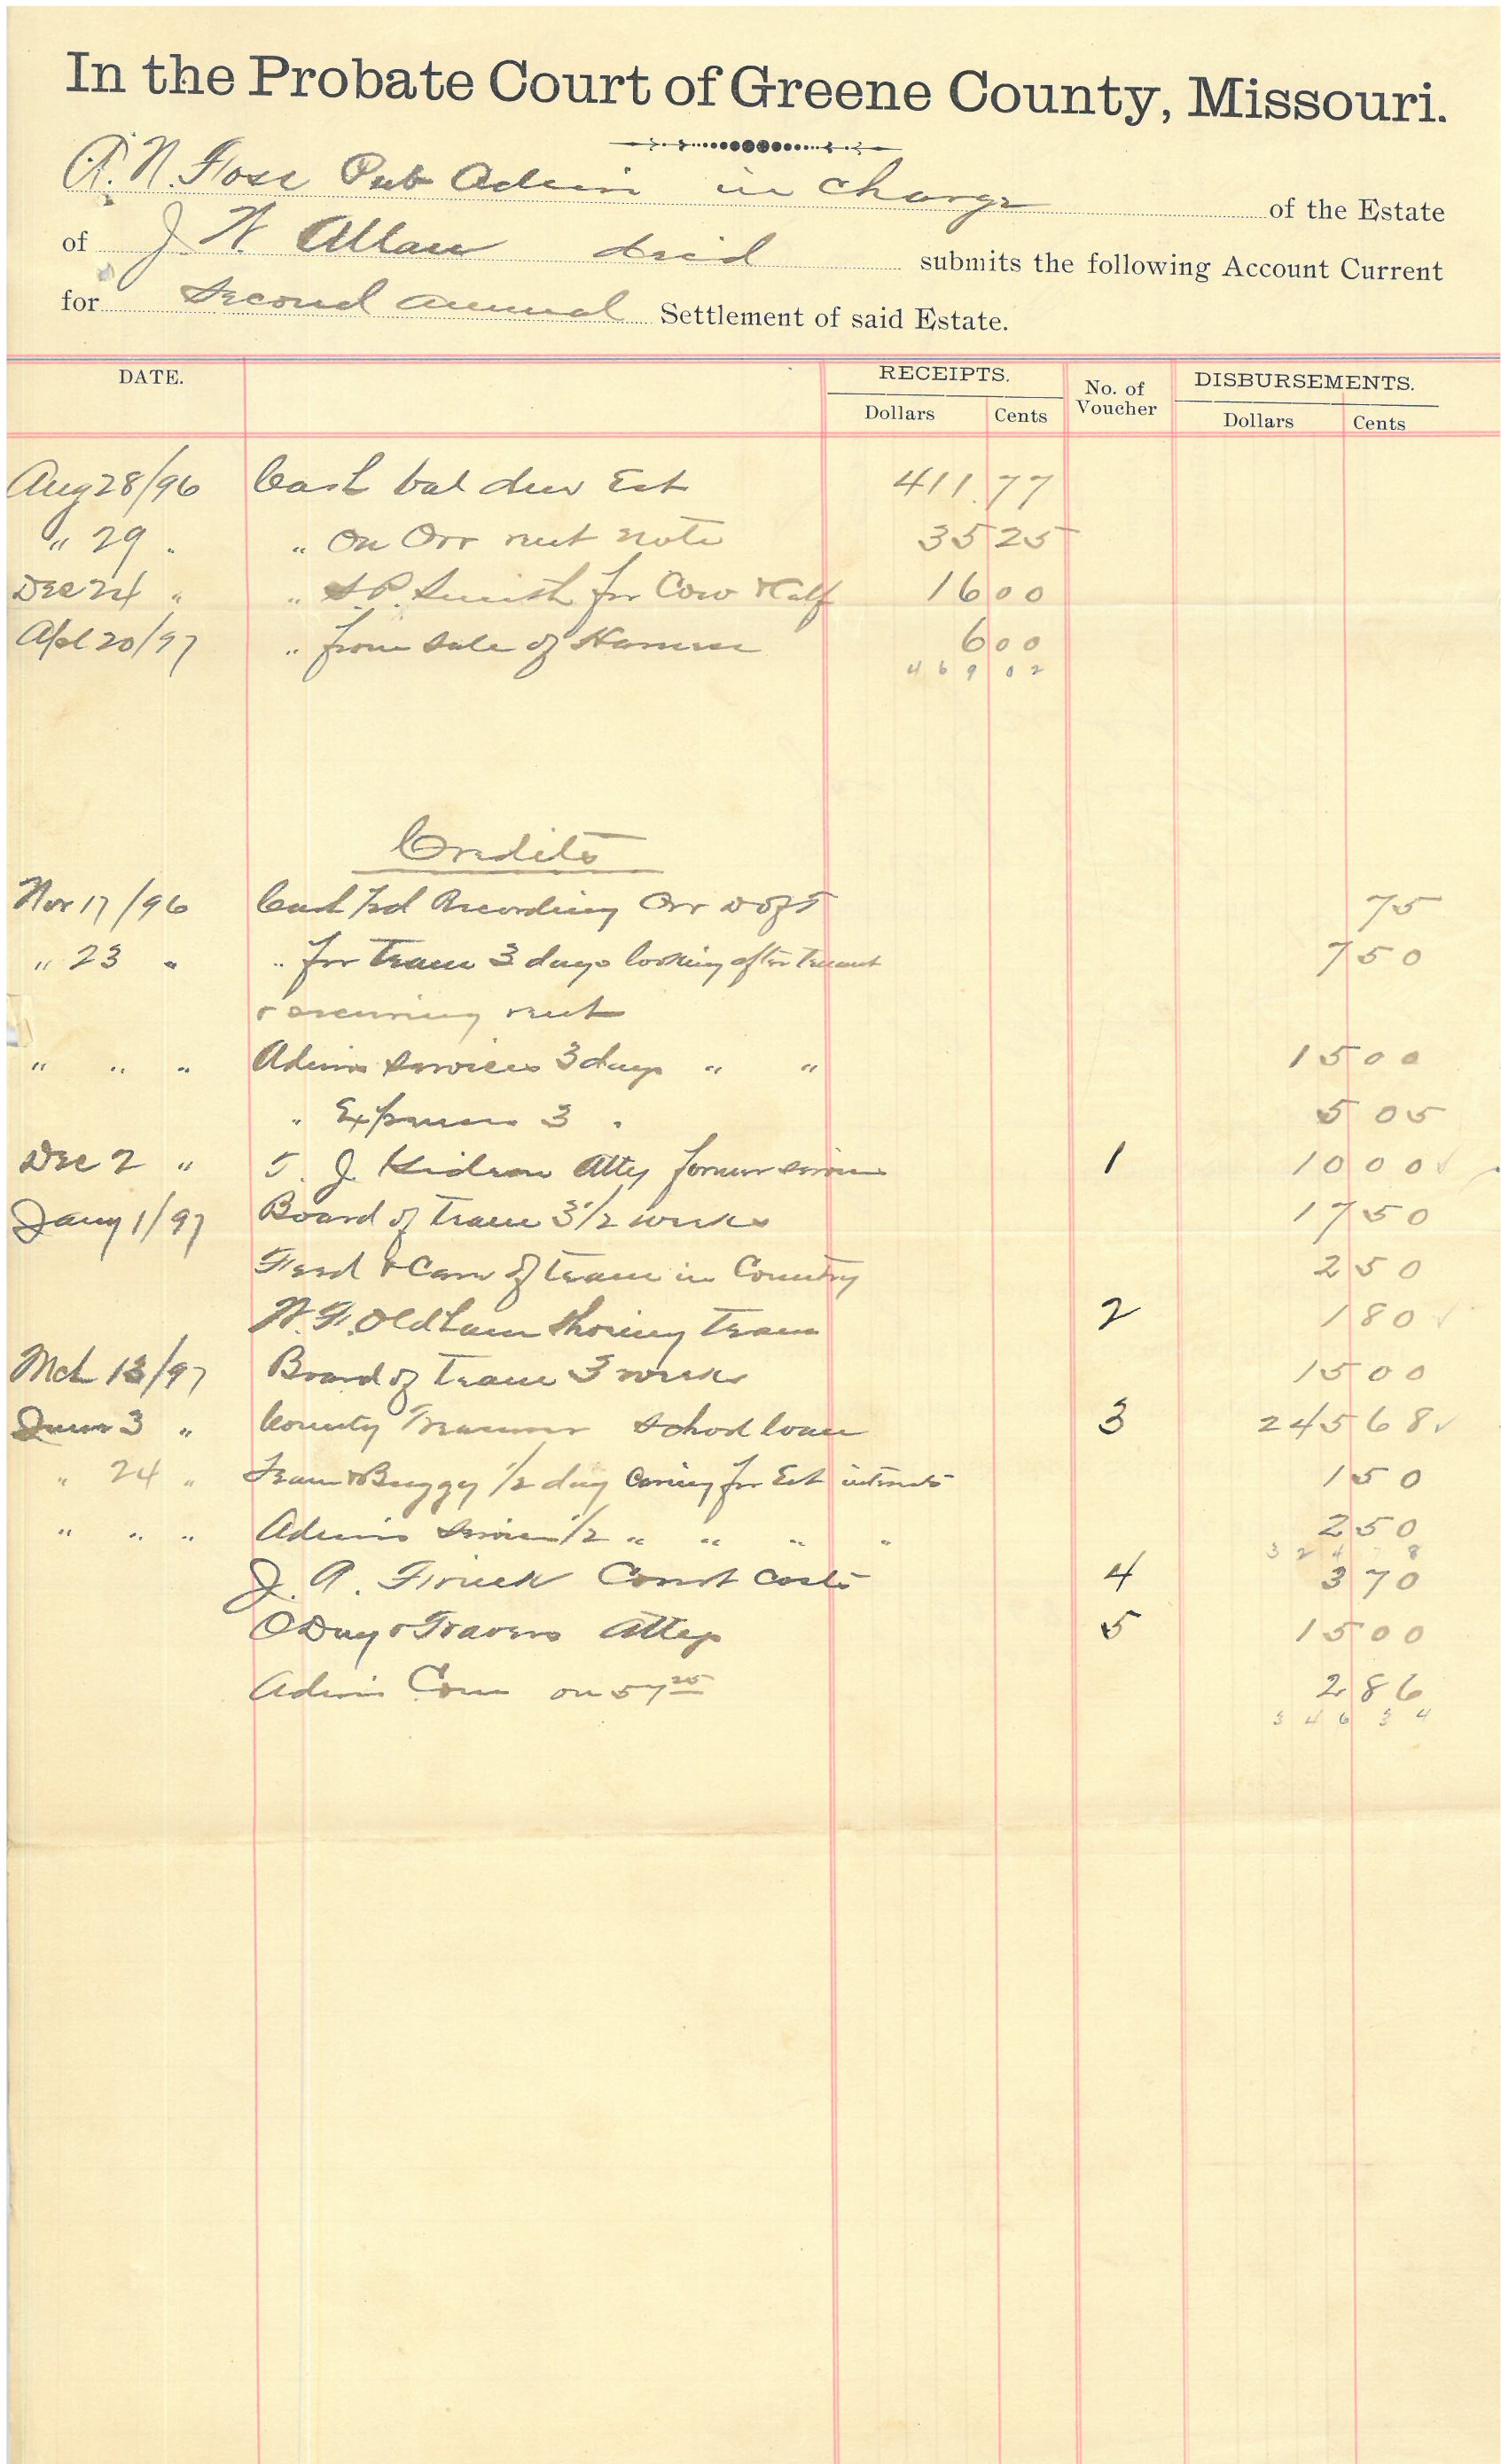 In the Probate Court of Greene County, Missouri.
A. N. Pub Admin in charge of the Estate
of J. W. Allen decd submits the following Account Current
for Second annual Settlement of said Estate.
DATE. RECEIPTS. No. of Voucher DISBURSEMENTS.
Dollars Cents Dollars Cents
Aug 28/96 Cash bal due Est 411.77
" 29 " " On Orr rent note 35 25
Dec 24 " " S.P. Smith for Cow & Calf 16 00
Apl 20/97 " from sale of Harness 6 00
469 02
Credits
Nov 17/96 Cash Pd Recording Orr D of T 75
" 23 " " for Team 3 days looking after tenant 7 50
& securing rent
" " " Admin services 3 days " " 15 00
" Expenses 3 " 5 05
Dec 2 " J. Atty former services 1 10 00
Jany 1/97 Board of Team 3 1/2 weeks 17 50
Feed & Care of team in Country 2 50
W. F. Oldham Shoeing Team 2 1 80
Mch 13/97 Board of Team 3 weeks 15 00
June 3 " County Treasurer School loan 3 245 68
" 24 " Team & Buggy 1/2 day Caring for Est interests 1 50
" " " Admin Services 1/2 " " " " 2 50
J. A. Court Costs 4 3 70
O Day & Travers Attys 5 15 00
Admin Com on 57 25 2 86
346 34